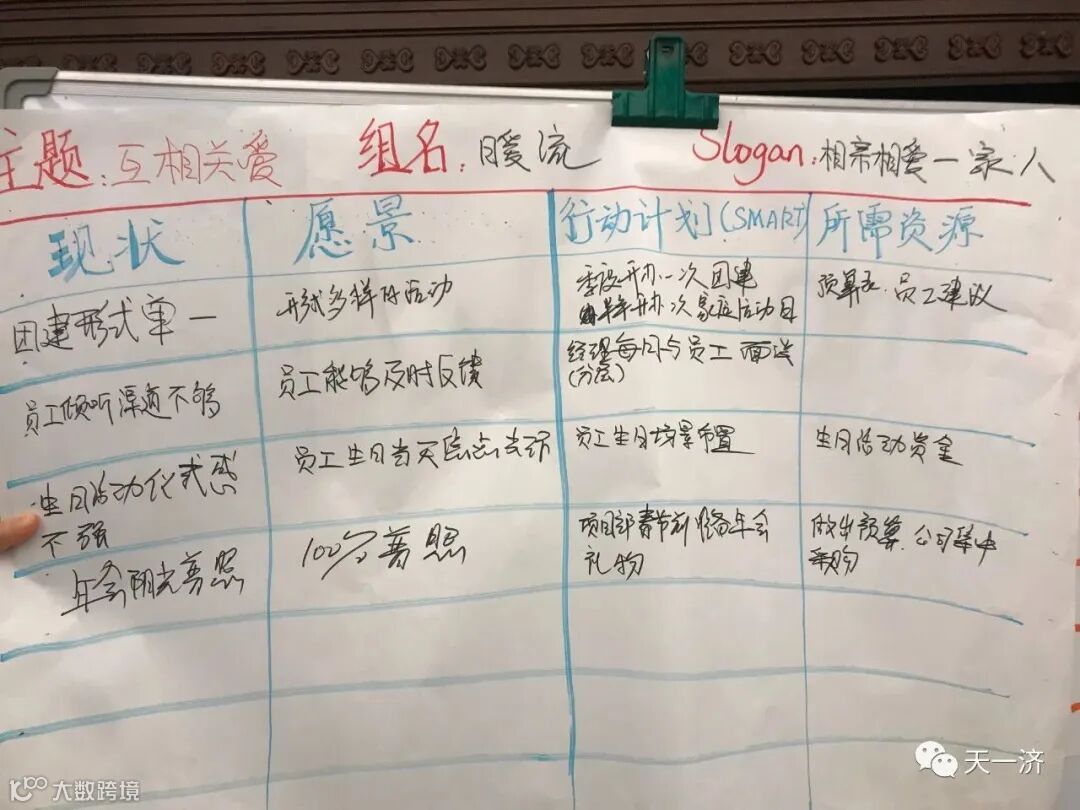 主题:互相关爱 组名:暖流 Slogan:相亲相爱一家人
现状 愿景 行动计划(SMART) 所需资源
团建形式单一 形式多样的活动 季度开办一次团建 预算 员工建议
半年开办一次家庭活动日
员工倾听渠道不够 员工能够及时反馈 经理每月与员工面谈
(分层)
生日活动仪式感 员工生日当天 员工生日场景布置 生日活动资金
不强
年会阳光普照 100%普照 项目部春节前准备年会 做出预算,公司集中
礼物 采购
天一济
大数跨境